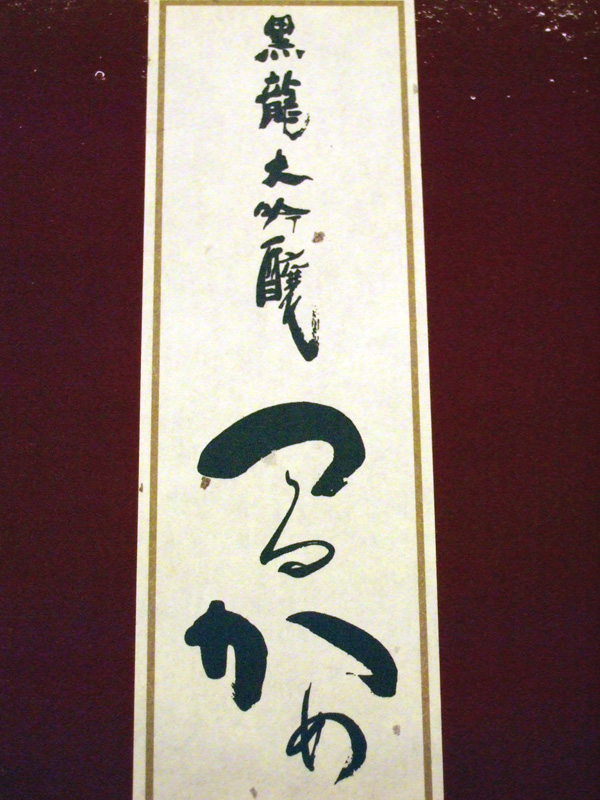 黒龍大吟醸
つるかめ